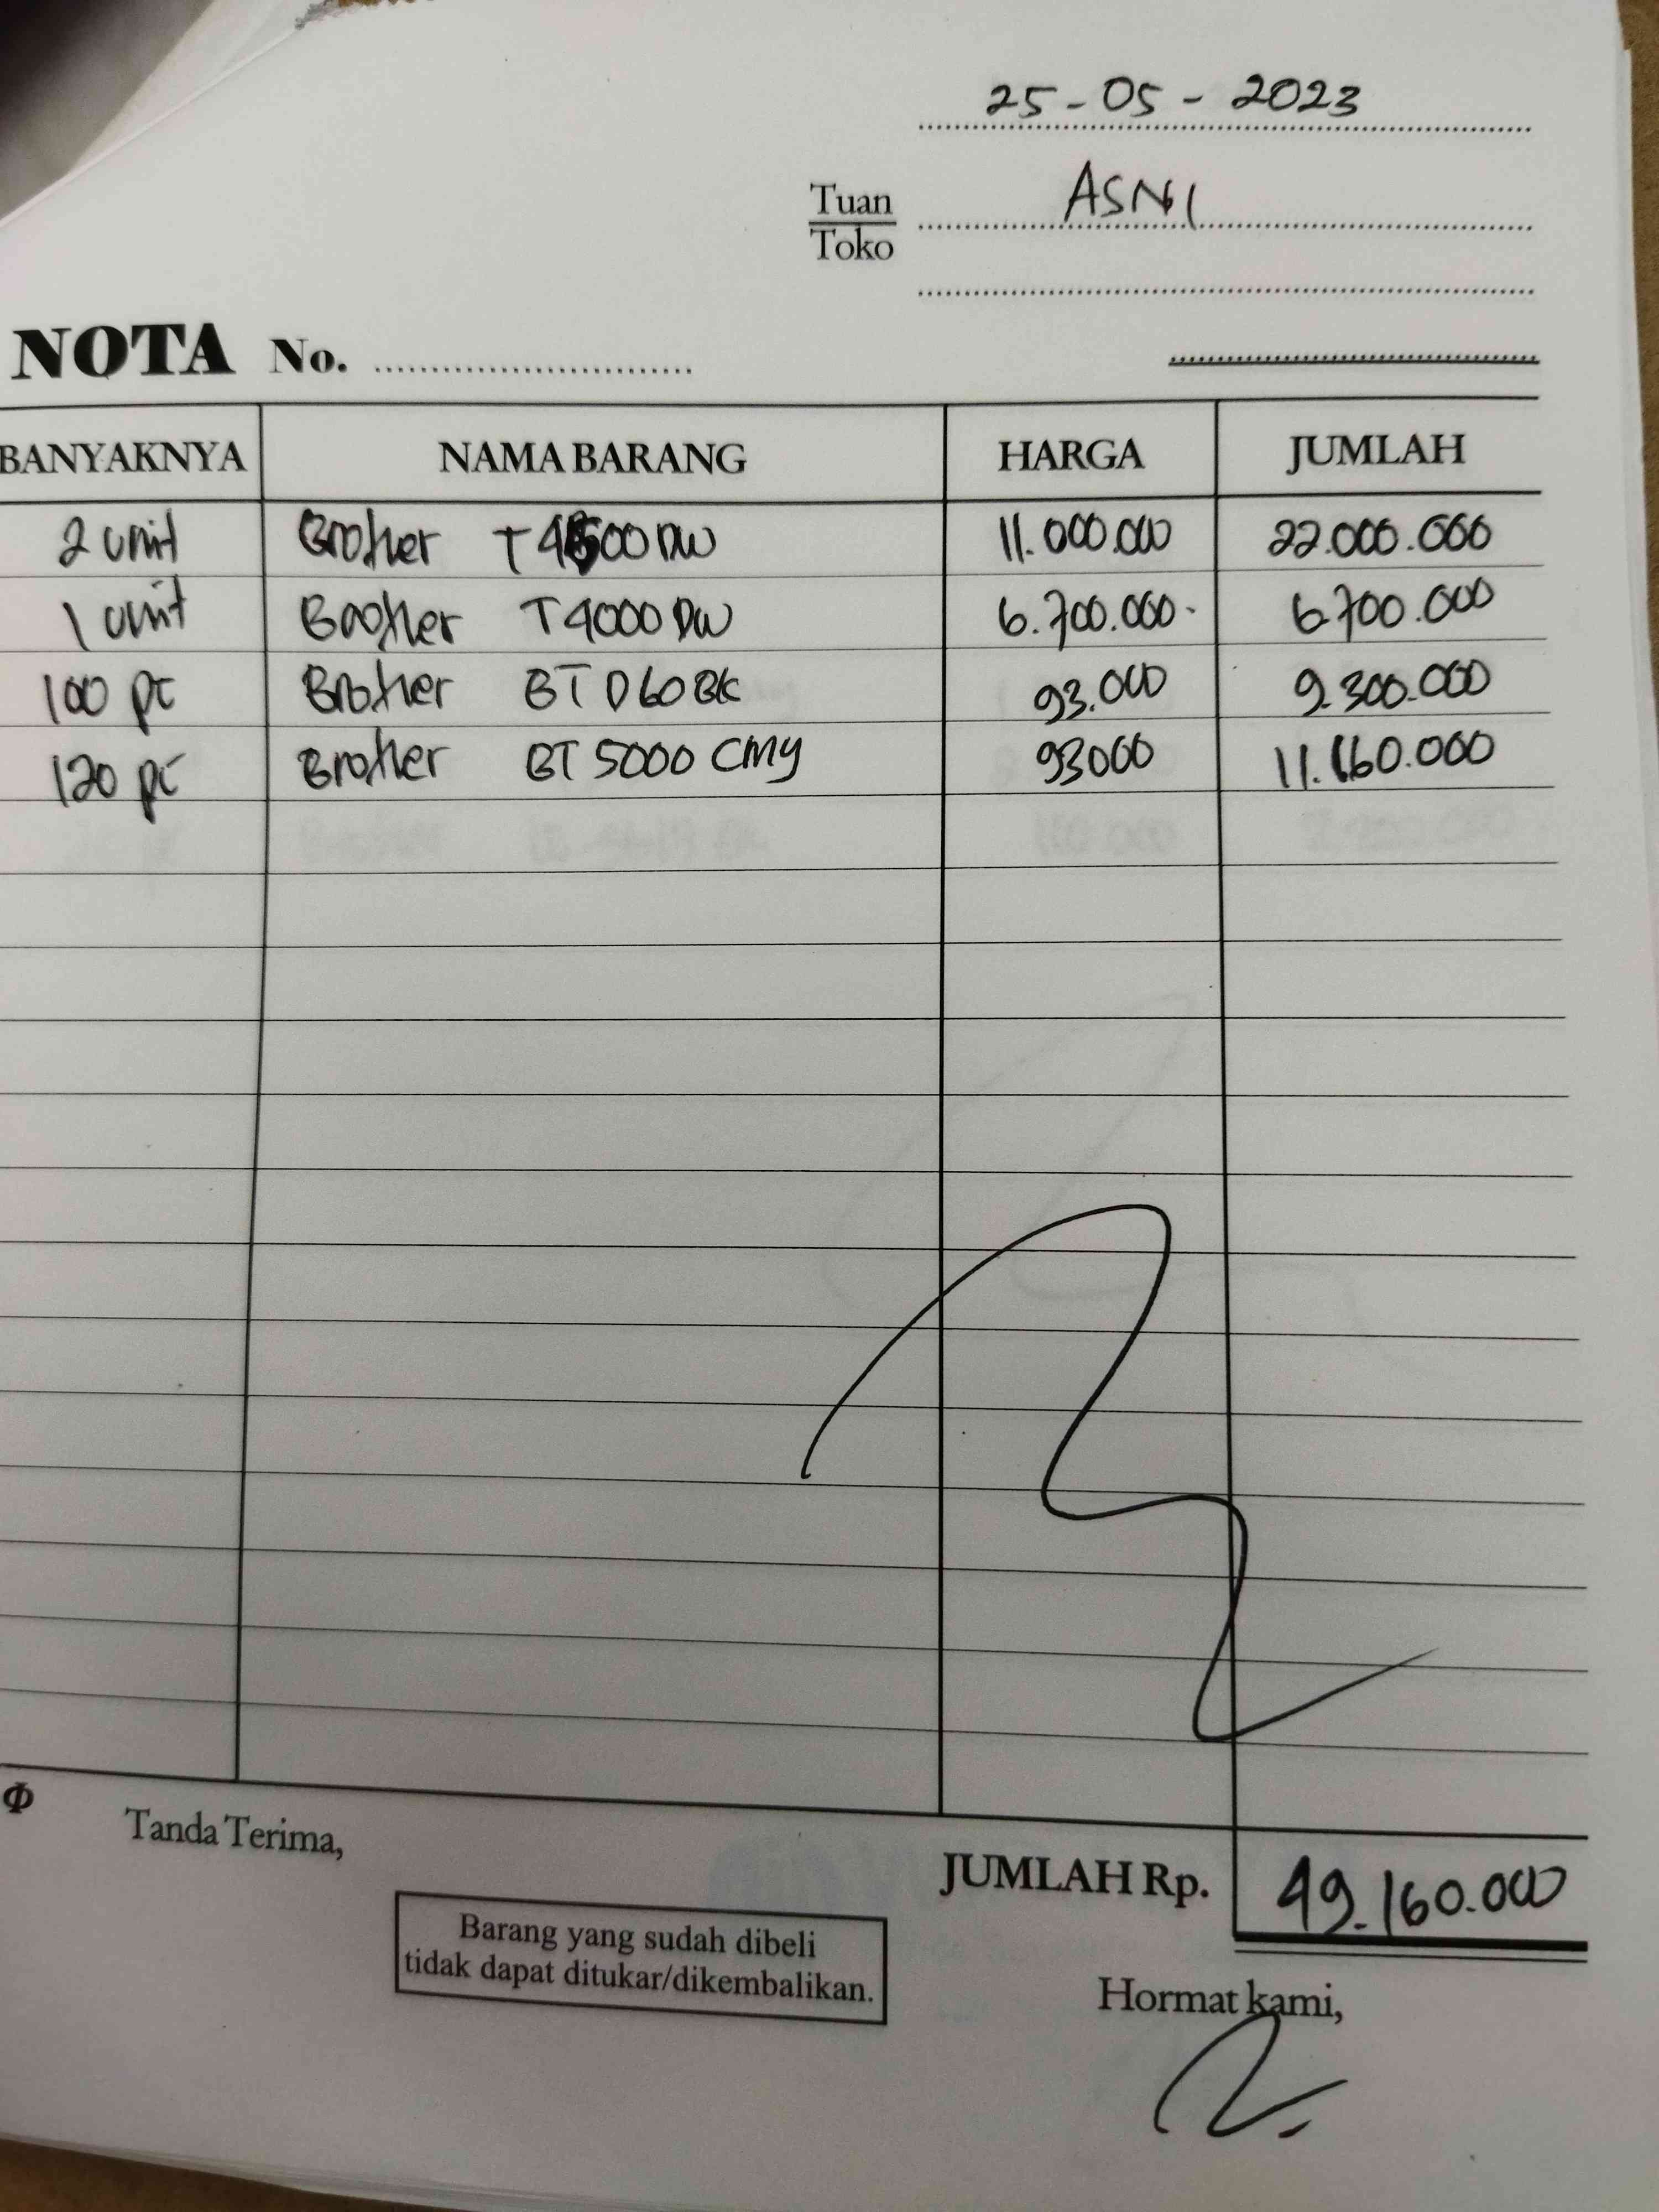 25-05-2023
Tuan ASNI
Toko
NOTA No.
BANYAKNYA NAMA BARANG HARGA JUMLAH
2 unit Brother T4500DW 11.000.000 22.000.000
1 unit Brother T4000DW 6.700.000 6.700.000
100 pc Brother BTD60BK 93.000 9.300.000
120 pc Brother BT5000 CMY 93000 11.160.000
Tanda Terima,
JUMLAH Rp. 49.160.000
Barang yang sudah dibeli
tidak dapat ditukar/dikembalikan.
Hormat kami,